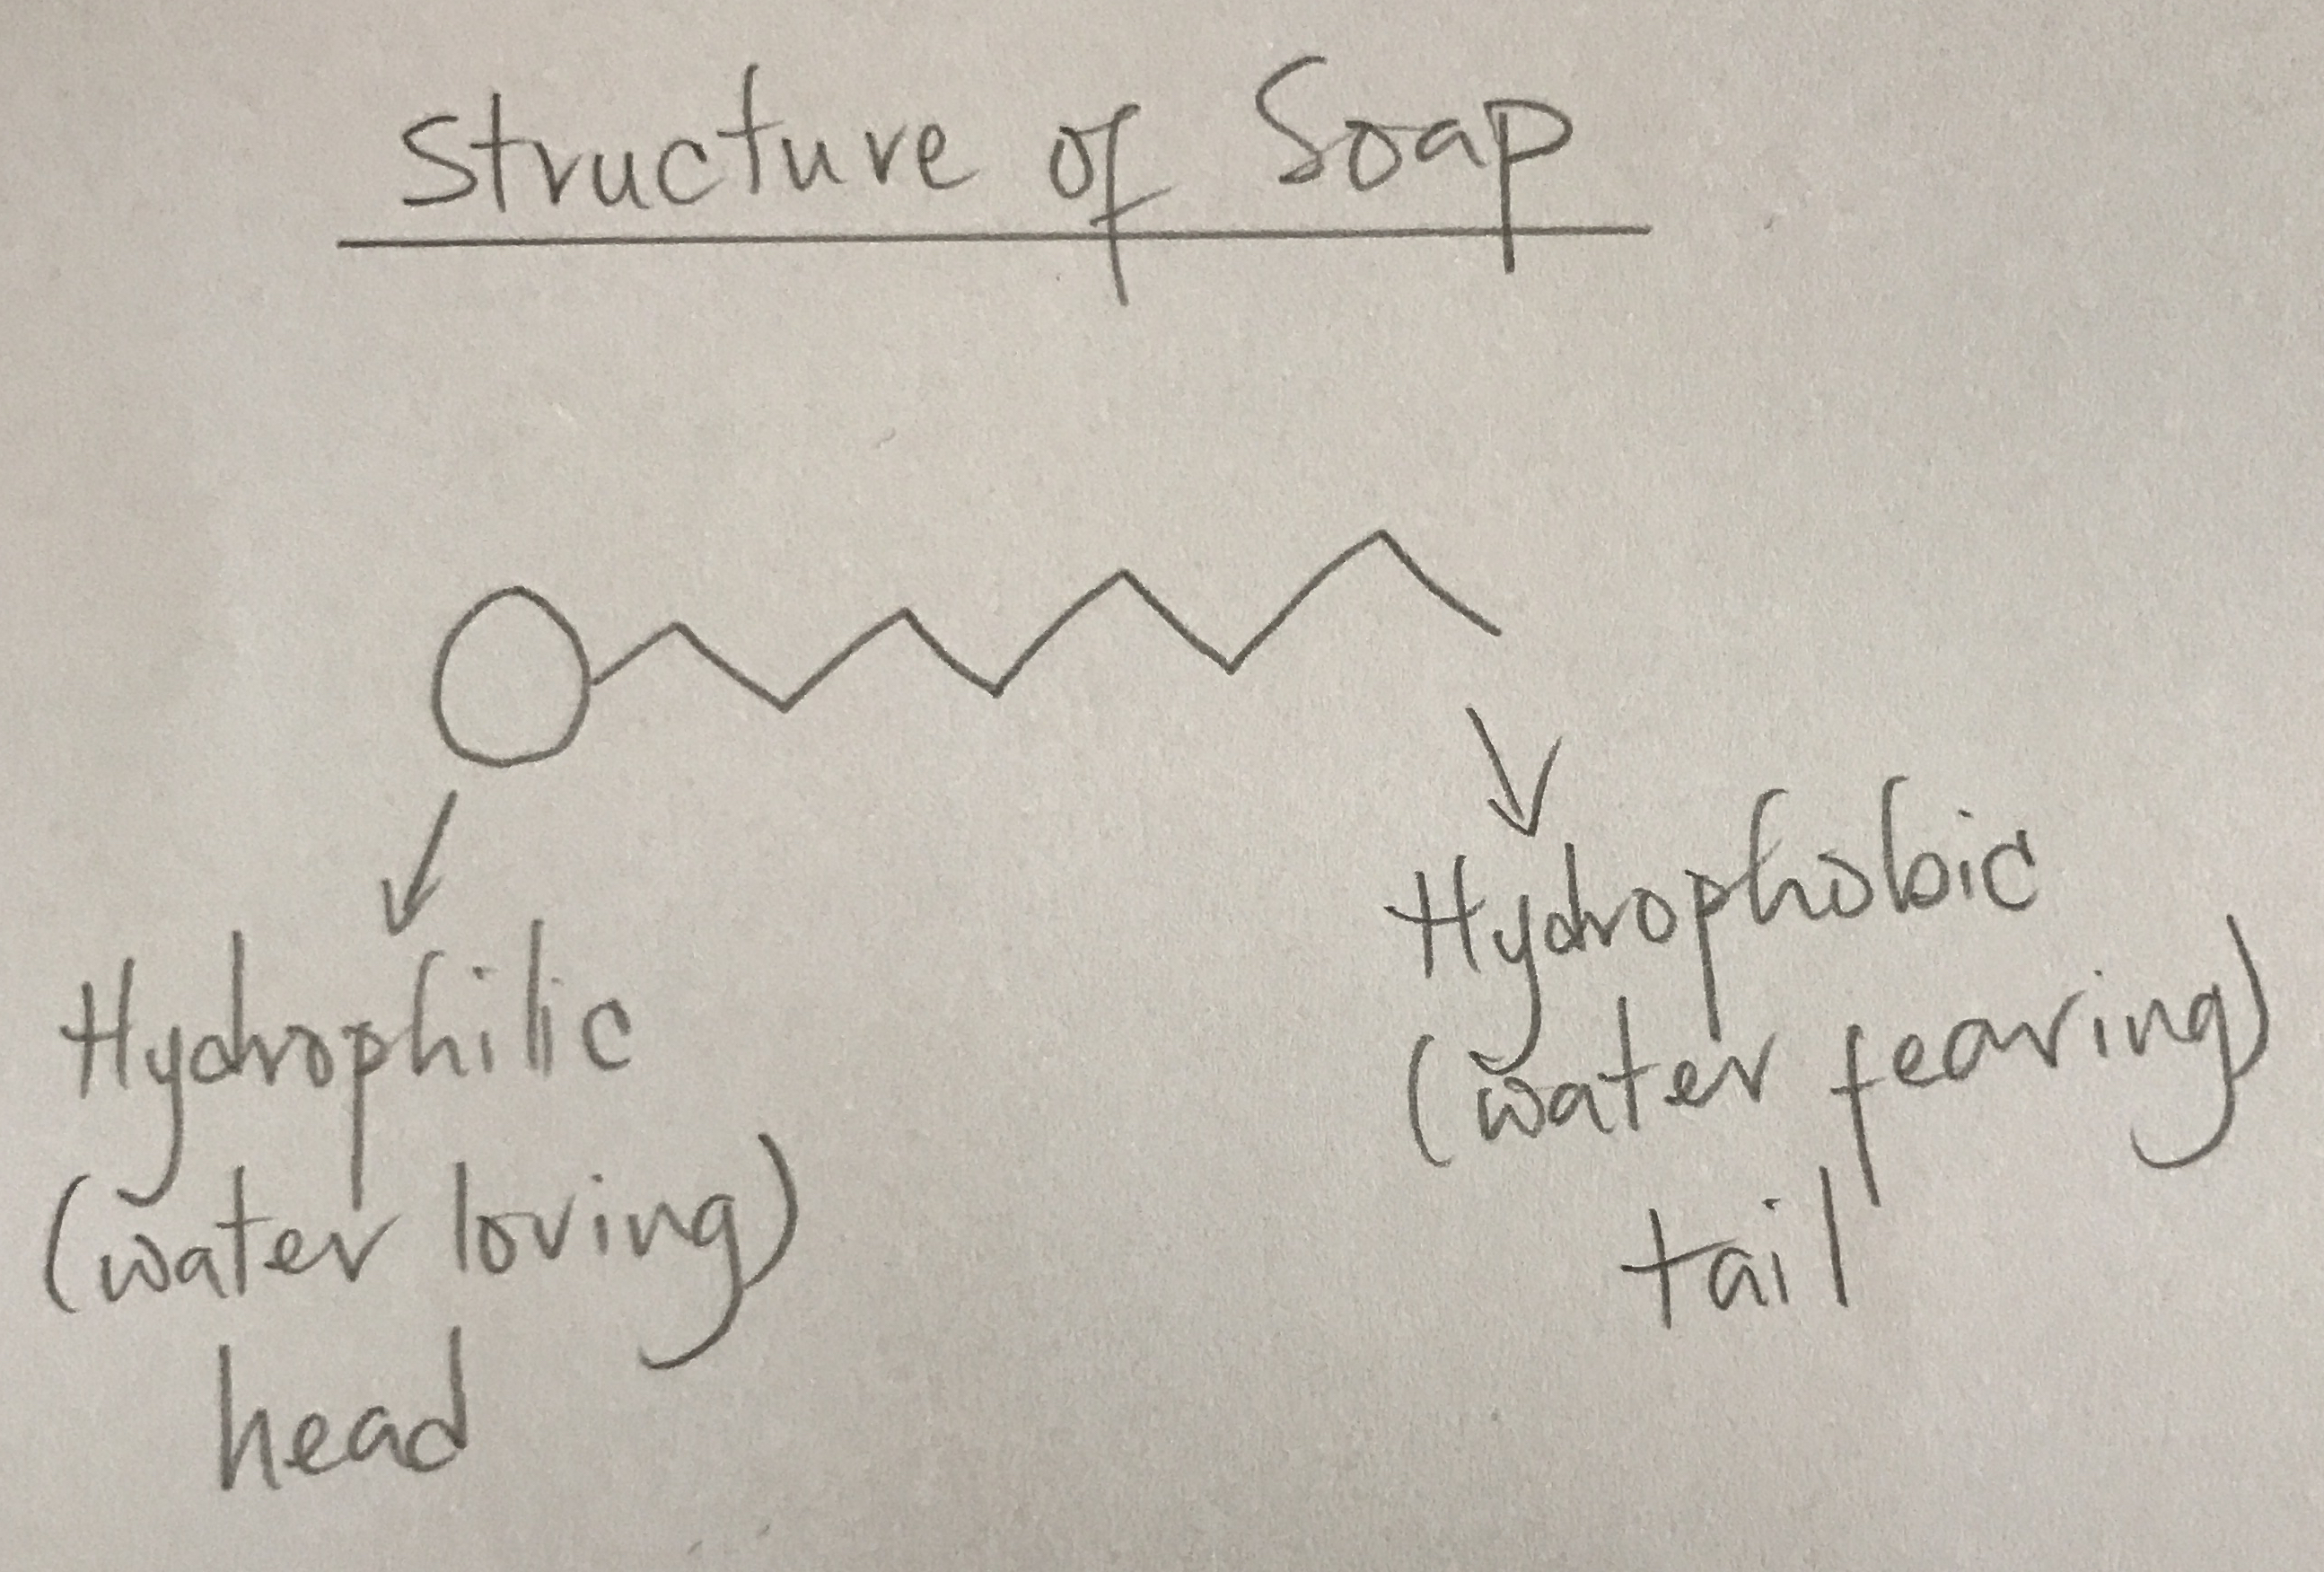 Structure of Soap
Hydrophilic
(water loving)
head
Hydrophobic
(water fearing)
tail